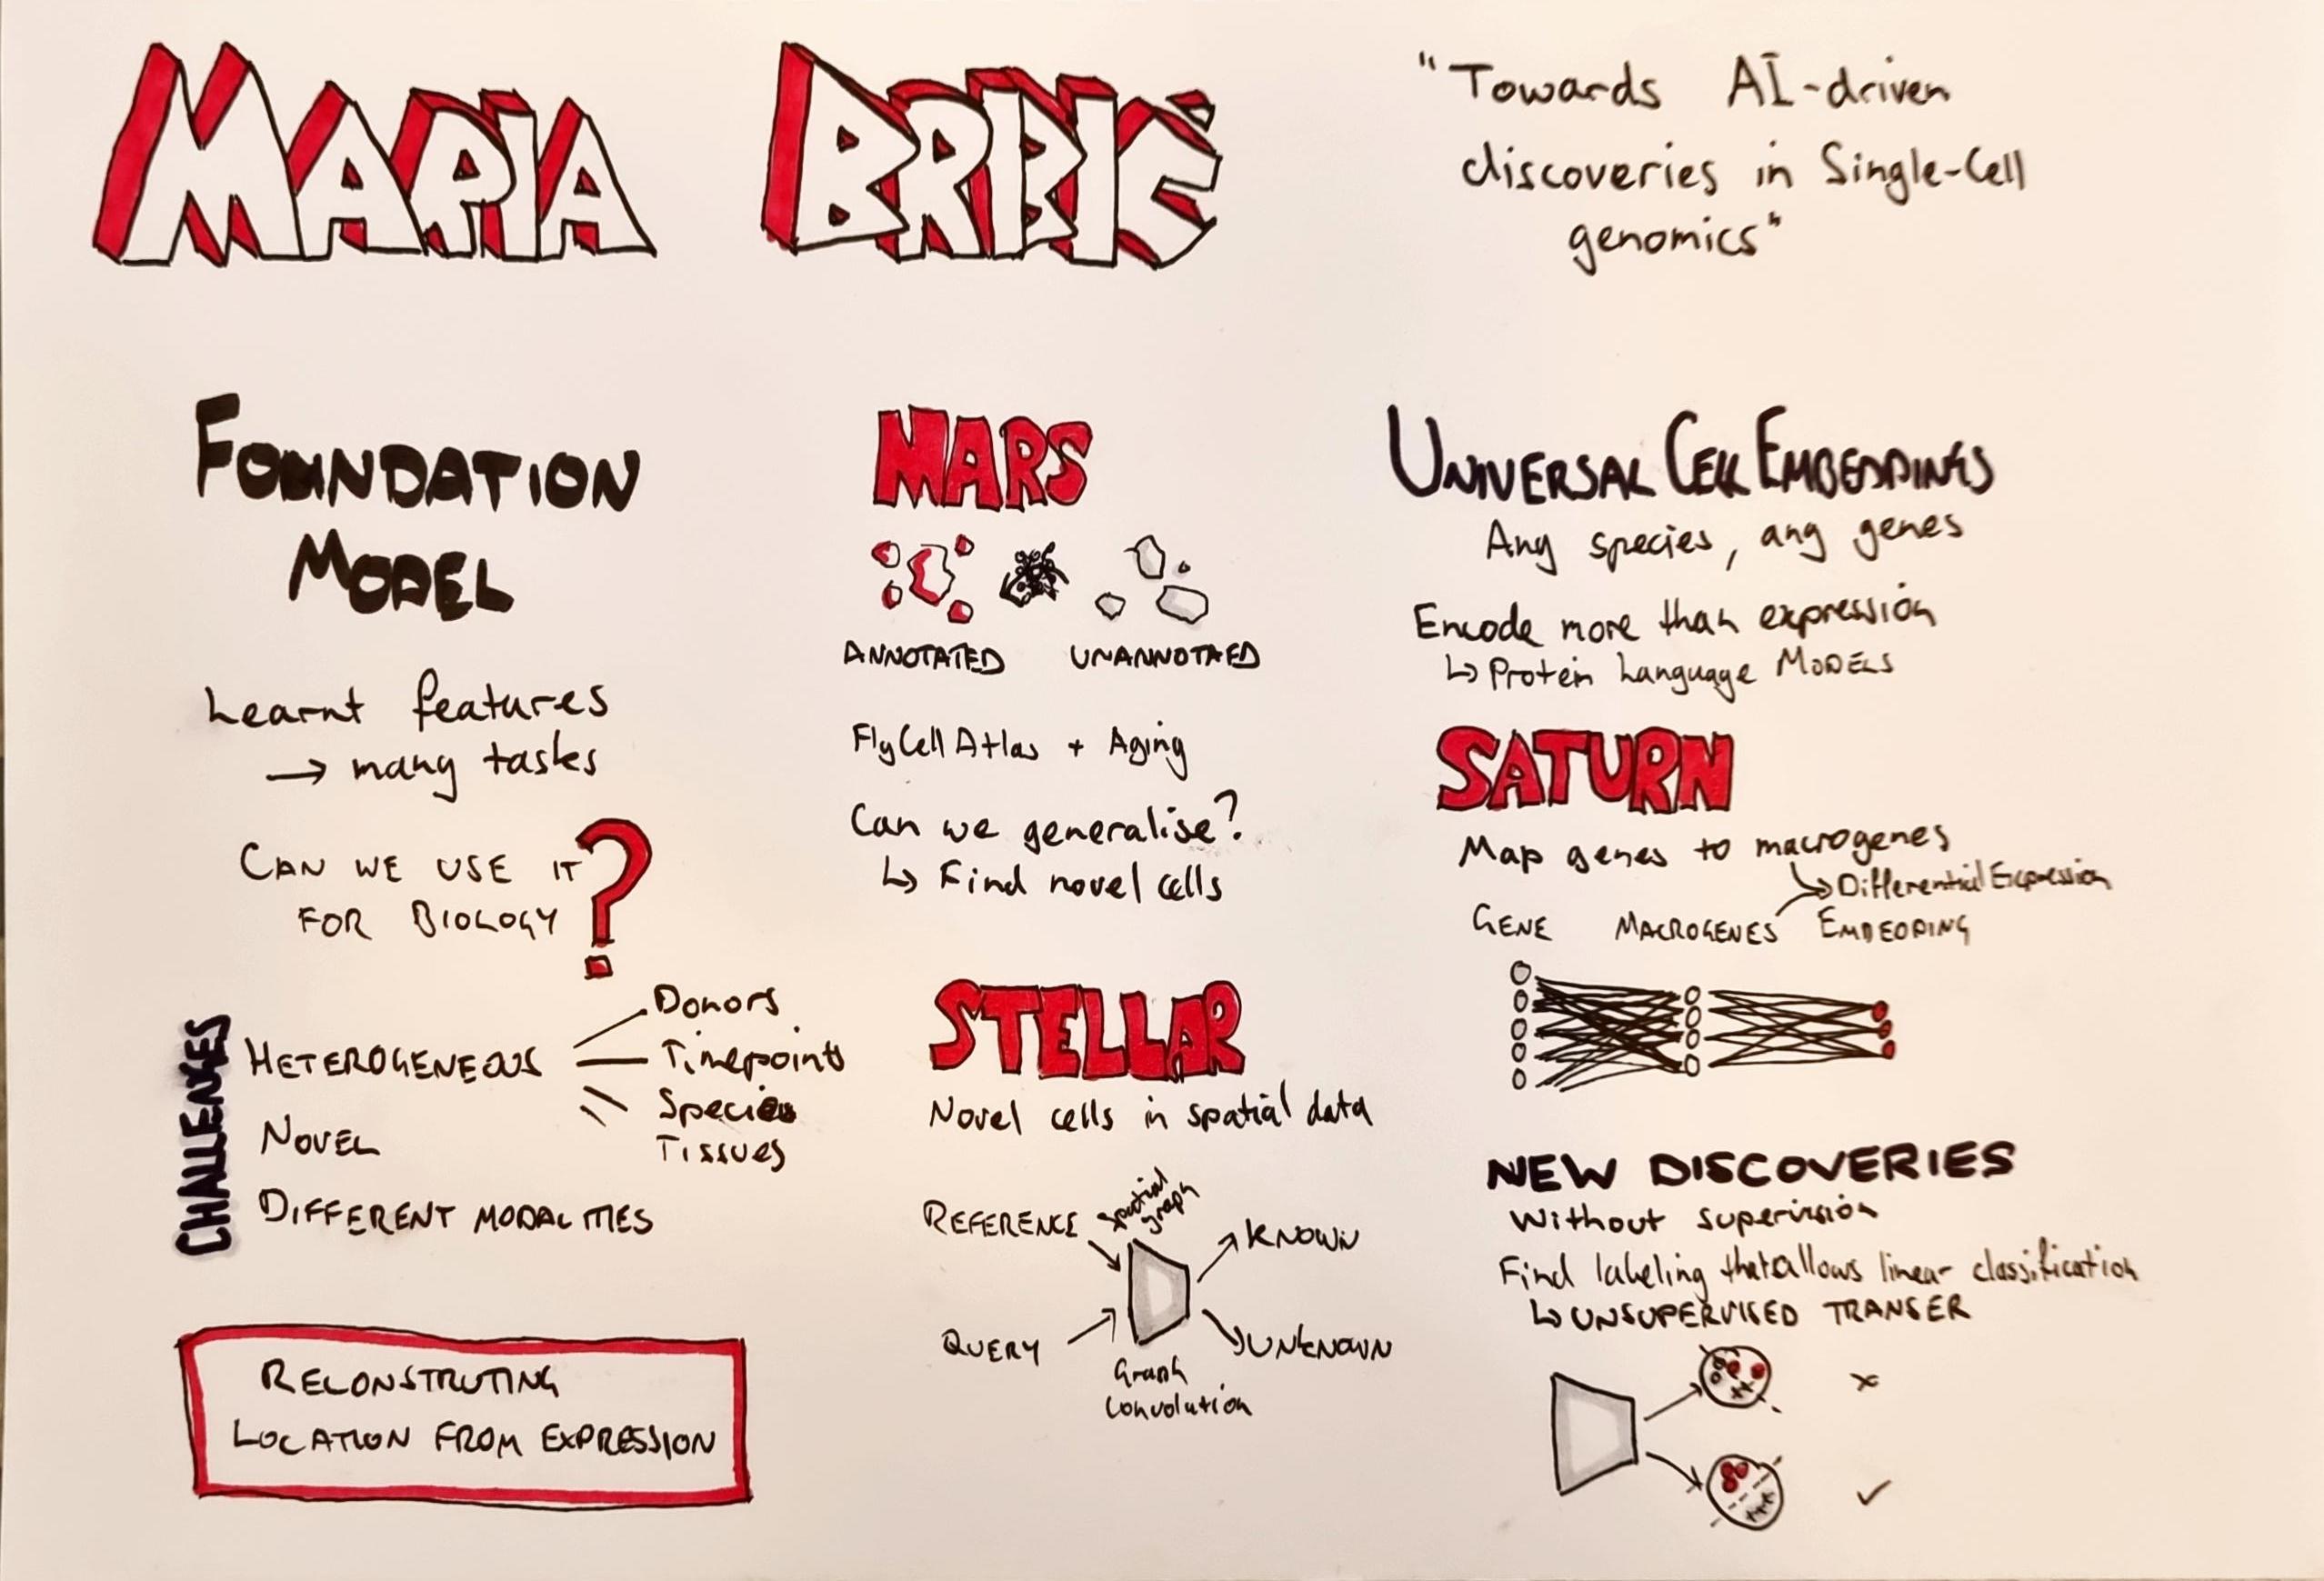 MARIA BRBIĆ
"Towards AI-driven
discoveries in Single-Cell
genomics"
FOUNDATION
MODEL
Learnt features
→ many tasks
CAN WE USE IT
FOR BIOLOGY ?
CHALLENGES
HETEROGENEOUS
Donors
Timepoints
Species
Tissues
NOVEL
DIFFERENT MODALITIES
RECONSTRUTING
LOCATION FROM EXPRESSION
MARS
ANNOTATED UNANNOTAED
FlyCellAtlas + Aging
Can we generalise?
↳ Find novel cells
STELLAR
Novel cells in spatial data
REFERENCE
Spatial
graph
KNOWN
QUERY
UNKNOWN
Graph
Convolution
UNIVERSAL CELL EMBEDDINGS
Any species, any genes
Encode more than expression
↳ Protein Language MODELS
SATURN
Map genes to macrogenes
→ Differential Expression
GENE MACROGENES EMBEDDING
NEW DISCOVERIES
Without supervision
Find labeling that allows linear classification
↳ UNSUPERVISED TRANSER